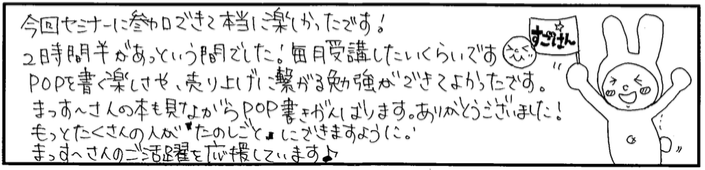 今回セミナーに参加できて本当に楽しかったです!
2時間半があっという間でした!毎月受講したいくらいです
POPを書く楽しさや、売り上げに繋がる勉強ができてよかったです。
まっす〜さんの本も見ながらPOP書きがんばします。ありがとうございました!
もっとたくさんの人が"たのしごと"にできますように。
まっす〜さんのご活躍を応援しています♪
すごはん